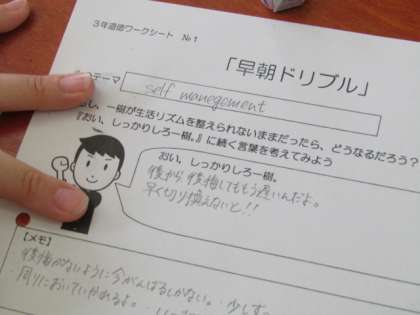 3年道徳ワークシート №1
「早朝ドリブル」
テーマ self manegement
し、一樹が生活リズムを整えられないままだったら、どうなるだろう？
『おい、しっかりしろ一樹。』に続く言葉を考えてみよう
おい、しっかりしろ一樹。
後から後悔してももう遅いんだよ。
早く切り換えないと!!
【メモ】
後悔がないように今がんばるしかない。
周りにおいていかれるよ。